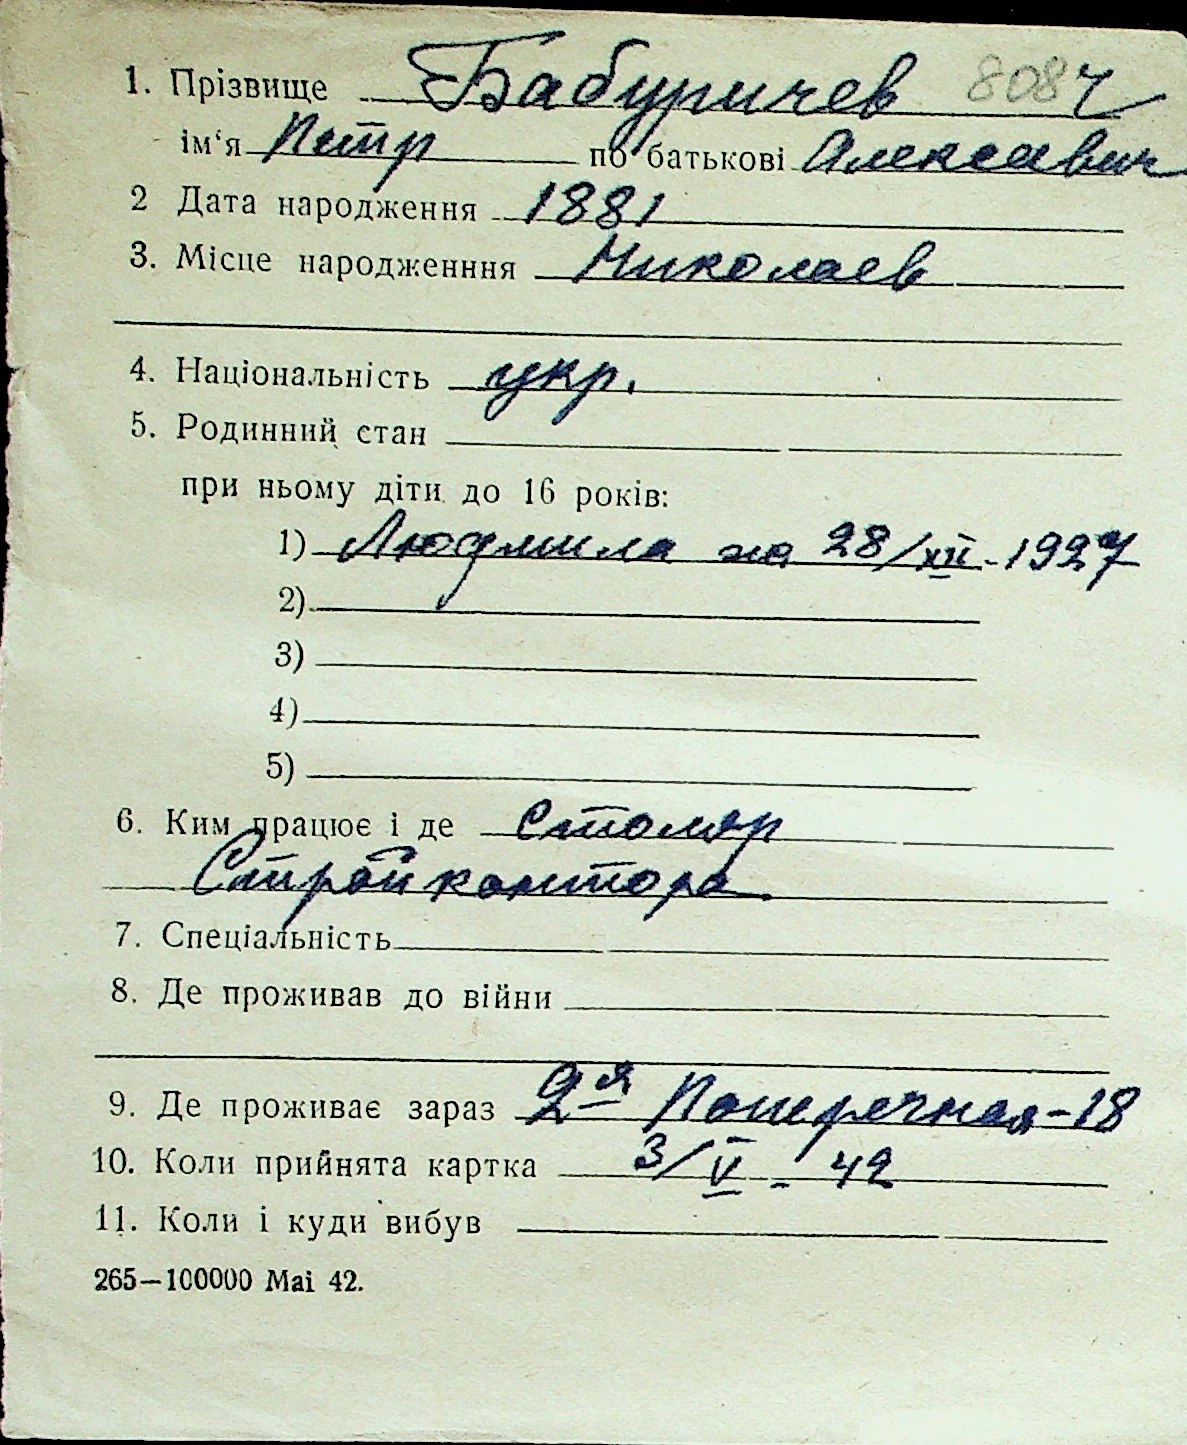 1. Прізвище Бабуричев 808 ч
ім'я Петр по батькові Алексеевич
2 Дата народження 1881
3. Місце народженння Николаев
4. Національність укр.
5. Родинний стан
при ньому діти до 16 років:
1) Людмила на 28/XII-1927
2)
3)
4)
5)
6. Ким працює і де Столяр
Стройконтора
7. Спеціальність
8. Де проживав до війни
9. Де проживає зараз 2я Поперечная-18
10. Коли прийнята картка 3/V-42
11. Коли і куди вибув
265—100000 Mai 42.